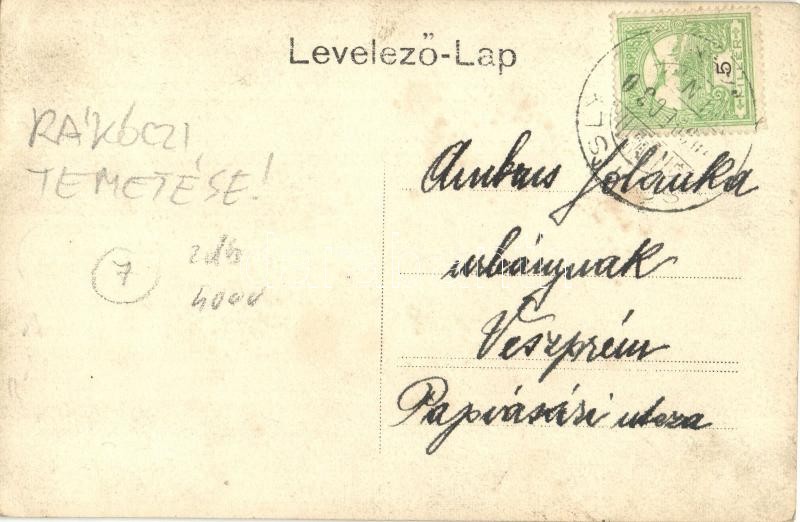 Levelező-Lap
RÁKÓCZI
TEMETÉSE!
7
2 db
4000
5
Ambrus Jolánka
urhánynak
Veszprém
Papvásári utcza